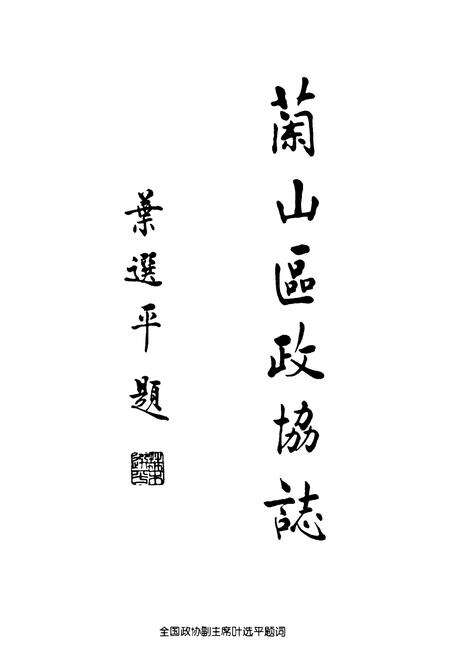 蘭山區政協誌
葉選平題
全国政协副主席叶选平题词